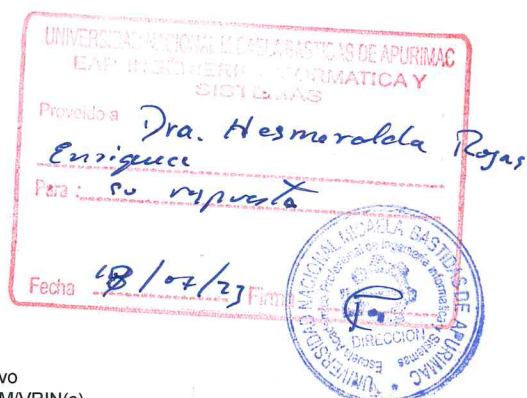 UNIVERSIDAD NACIONAL MICAELA BASTIDAS DE APURIMAC
EAP INGENIERIA INFORMATICA Y
SISTEMAS
Proveido a Dra. Hesmeralda Rojas
Enriquez
Para : su respuesta
Fecha 18/07/23 Firma
UNIVERSIDAD NACIONAL MICAELA BASTIDAS DE APURIMAC
Escuela Académico Profesional de Ingeniería Informática y Sistemas
DIRECCION
vo
M/VRIN(e)